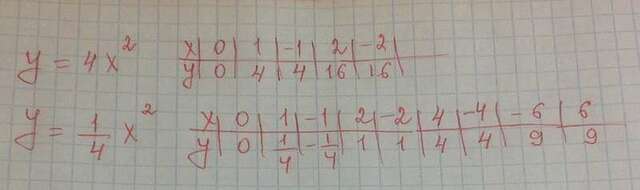 y = 4x² x | 0 | 1 | -1 | 2 | -2 |
y | 0 | 4 | 4 | 16 | 16 |
y = 1/4 x² x | 0 | 1 | -1 | 2 | -2 | 4 | -4 | -6 | 6
y | 0 | 1/4 | -1/4 | 1 | 1 | 4 | 4 | 9 | 9